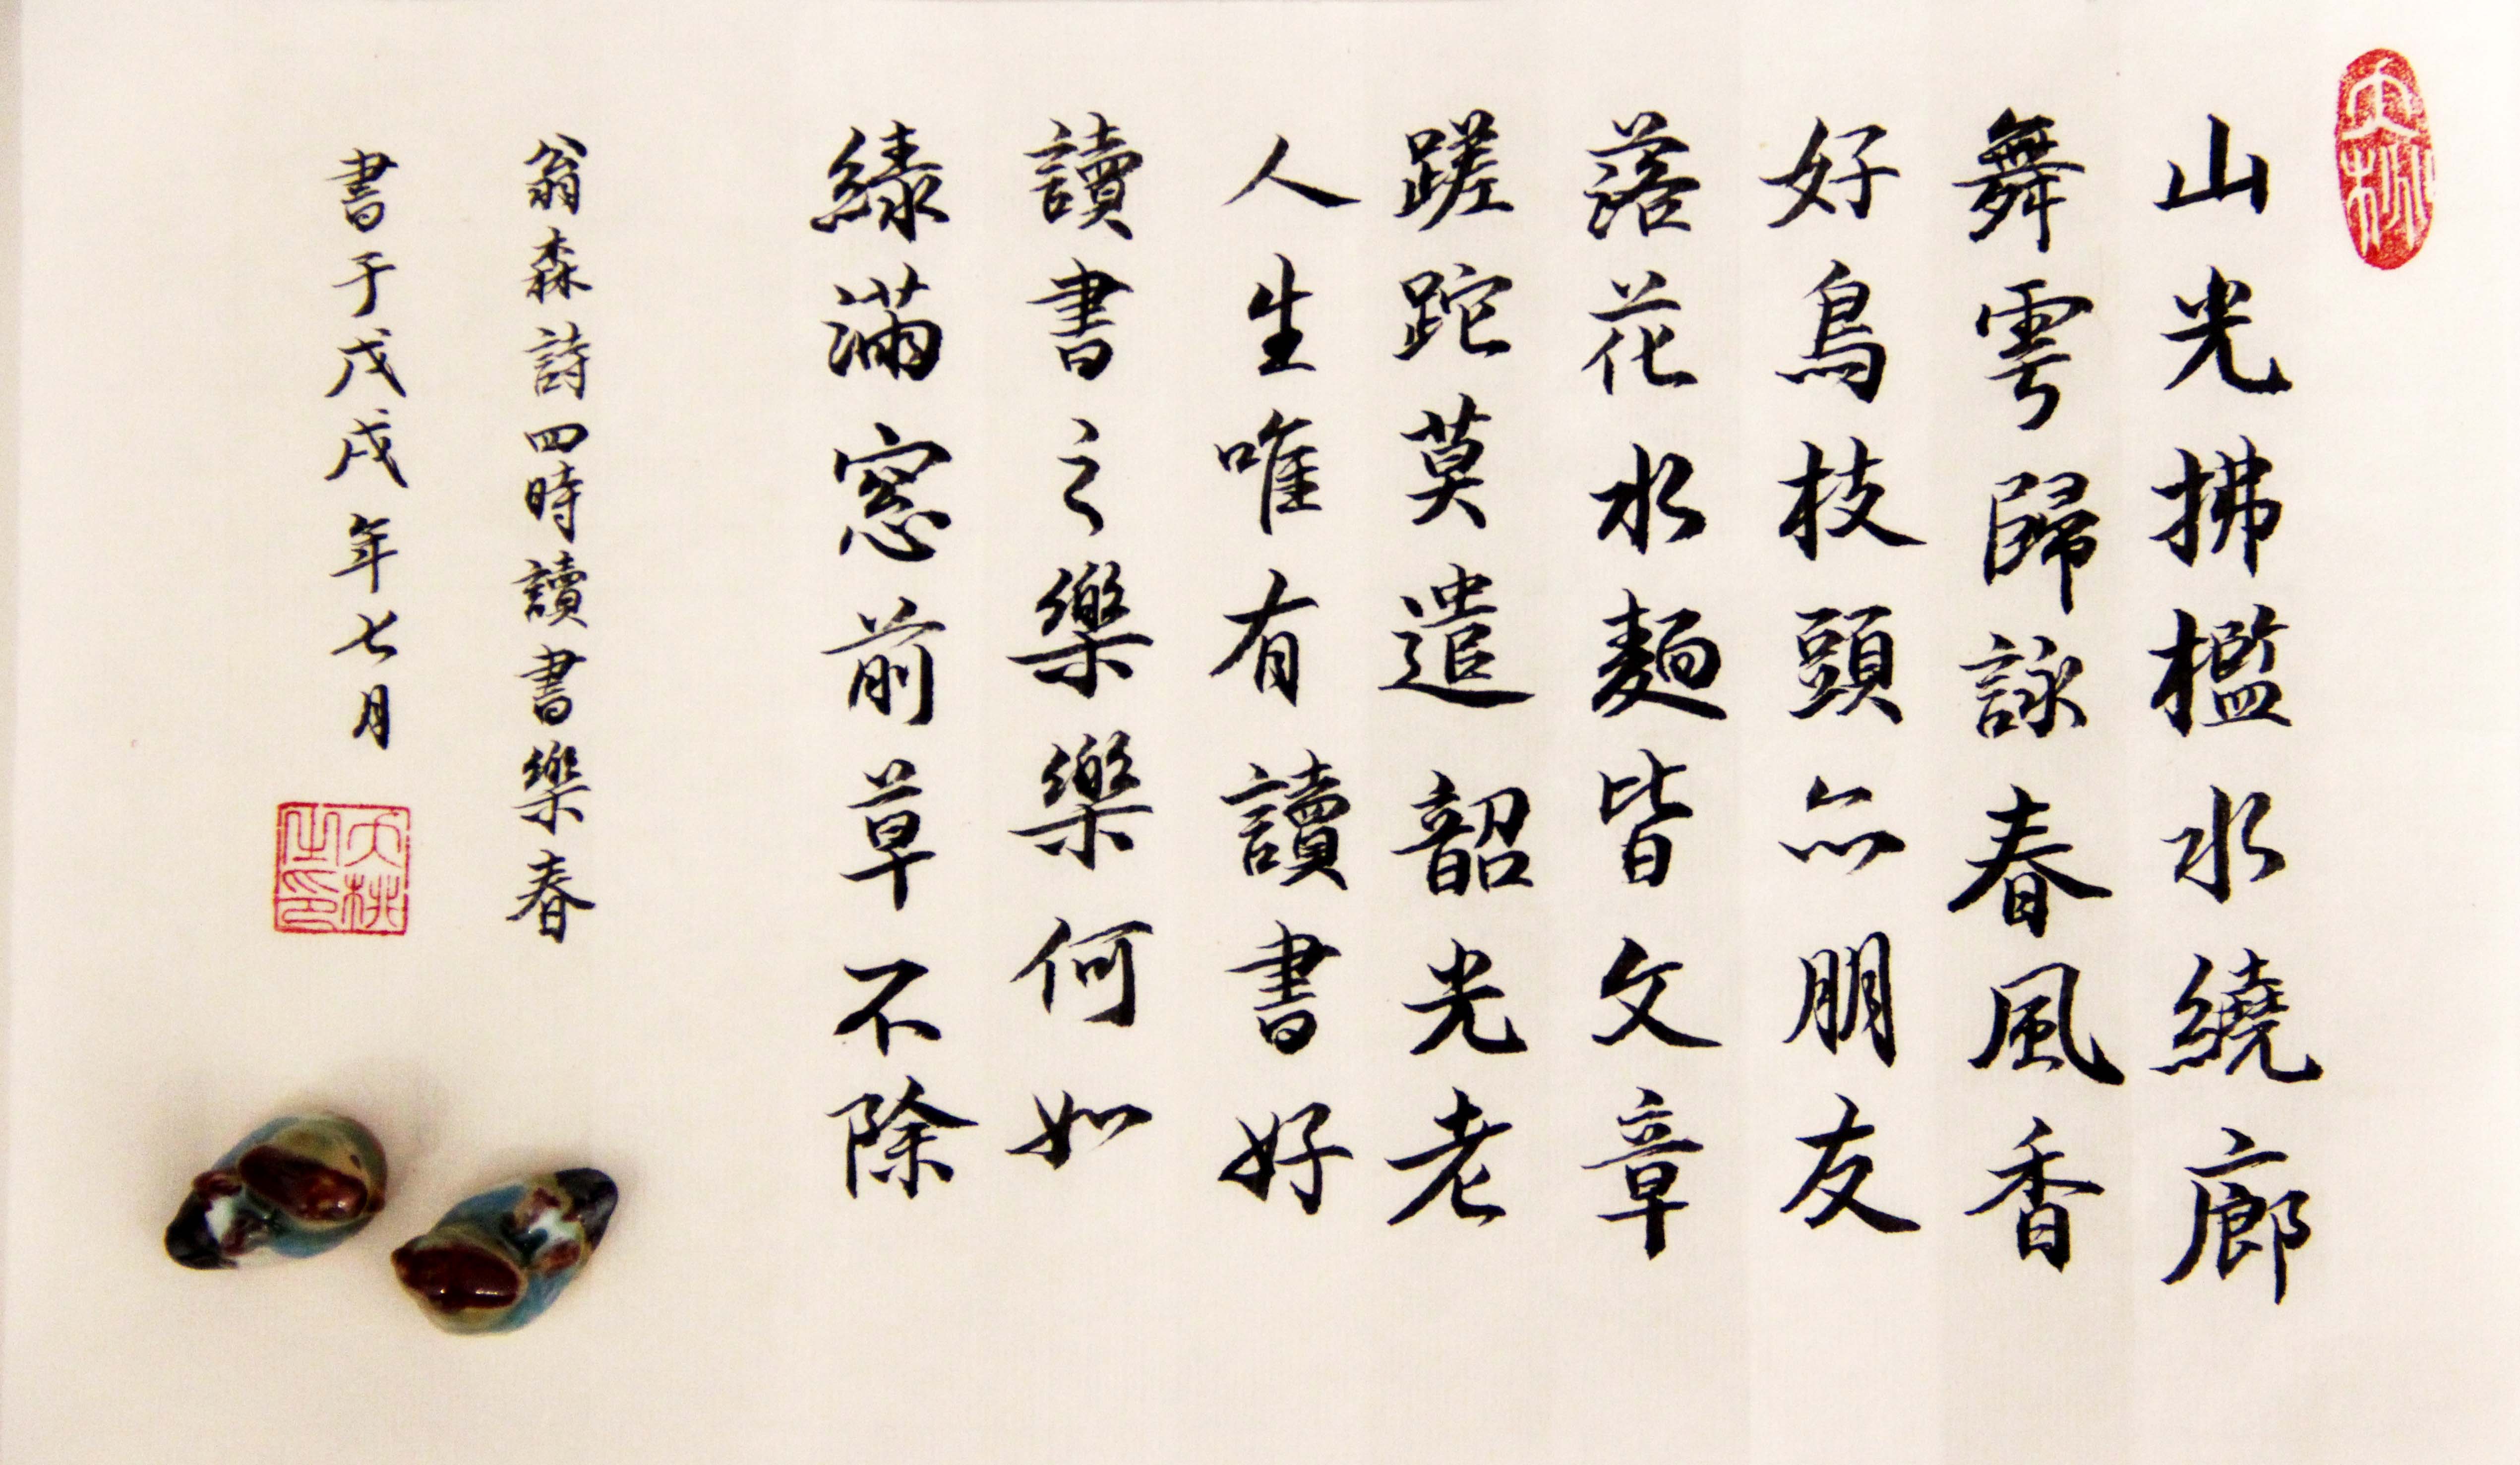 山光拂檻水繞廊
舞雩歸詠春風香
好鳥枝頭亦朋友
落花水麵皆文章
蹉跎莫遣韶光老
人生唯有讀書好
讀書之樂樂何如
綠滿窓前草不除
翁森詩四時讀書樂春
書于戊戌年七月